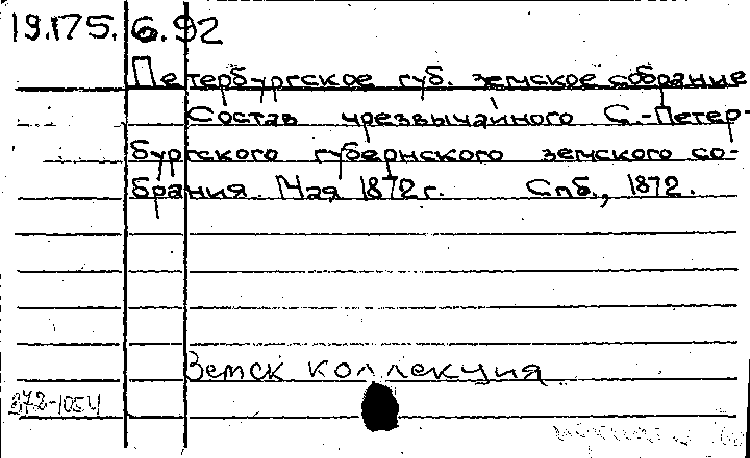 19.175.6.92
Петербургское губ. земское собрание
Состав чрезвычайного С.-Петер-
бургского губернского земского со-
брания. Мая 1872 г. Спб., 1872.
Земск коллекция